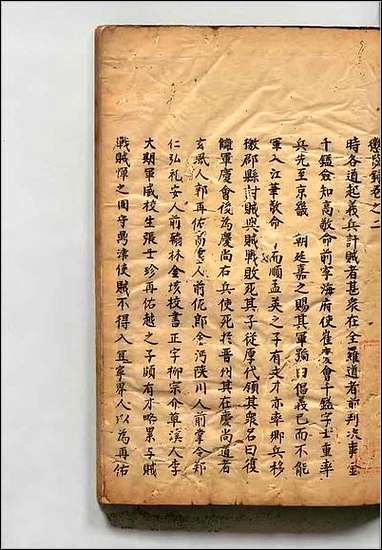 懲毖錄卷之二
時各道起義兵討賊者甚衆在全羅道者前判决事金
千鎰僉知高敬命前寧海府使崔慶會千鎰字士重率
兵先至京畿 朝廷嘉之賜其軍號曰倡義已而不能
軍入江華敬命 而順孟英之子有文才亦率鄉兵移
檄郡縣討賊與賊戰敗死其子從厚代領其衆名曰復
讎軍慶會後爲慶尚右兵使死於晋州其在慶尚道者
玄風人郭再佑高靈人前佐郎金沔陜川人前掌令郑
仁弘礼安人前翰林金垓校書正字柳宗介草溪人李
大期軍威校生張士珍再佑越之子頗有才略累与賊
戰賊憚之固守鼎津使賊不得入宜寧界人以為再佑